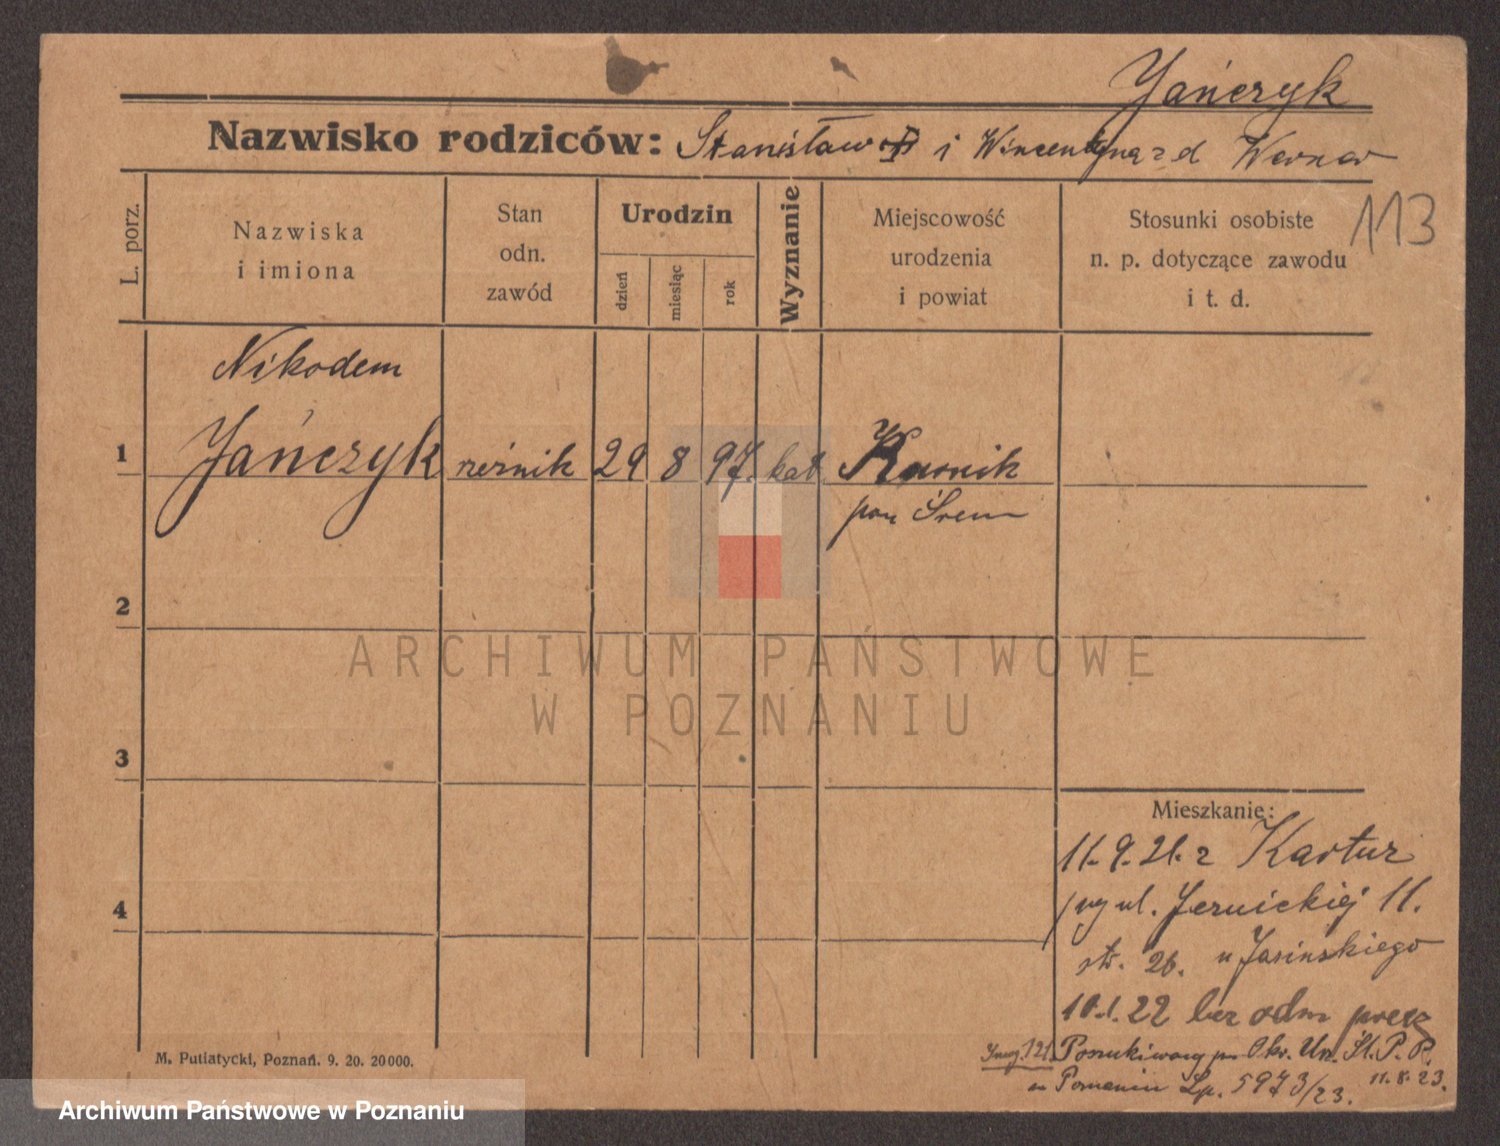 Jańczyk
Nazwisko rodziców: Stanisław i Wincentyna z d Werner
113
L. porz.
Nazwiska
i imiona
Stan
odn.
zawód
Urodzin
dzień
miesiąc
rok
Wyznanie
Miejscowość
urodzenia
i powiat
Stosunki osobiste
n. p. dotyczące zawodu
i t. d.
Nikodem
1 Jańczyk rzeźnik 29 8 97. kat Kurnik
pow Śrem
2
3
4
Mieszkanie:
11.9.21. z Kartuz
ul. 11.
str. 26. u Jasińskiego
10.1.22 bez odm precz
121. Poszukiwany p. Okr. Urz. Śl. P. P.
w Poznaniu Lp. 5973/23. 11.8.23.
M. Putiatycki, Poznań. 9. 20. 20000.
ARCHIWUM PAŃSTWOWE
W POZNANIU
Archiwum Państwowe w Poznaniu